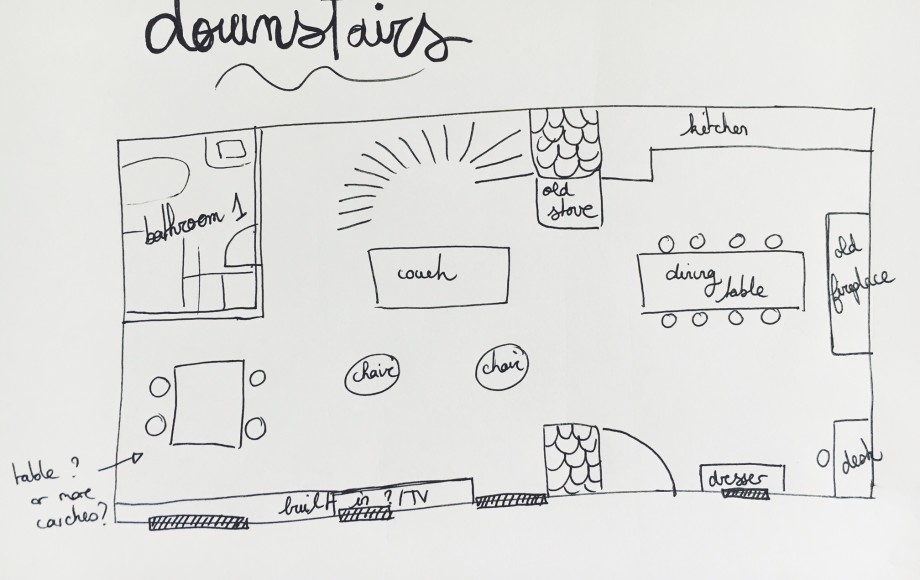 downstairs
kitchen
old
stove
bathroom 1
couch
dining
table
old
fireplace
chair
chair
table ?
or more
couches?
built in ? / TV
dresser
desk